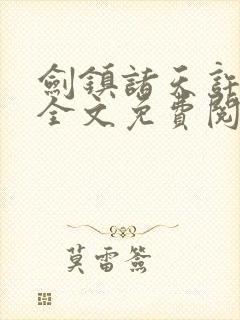 劍鎮諸天
全文免費閱
莫雷簽